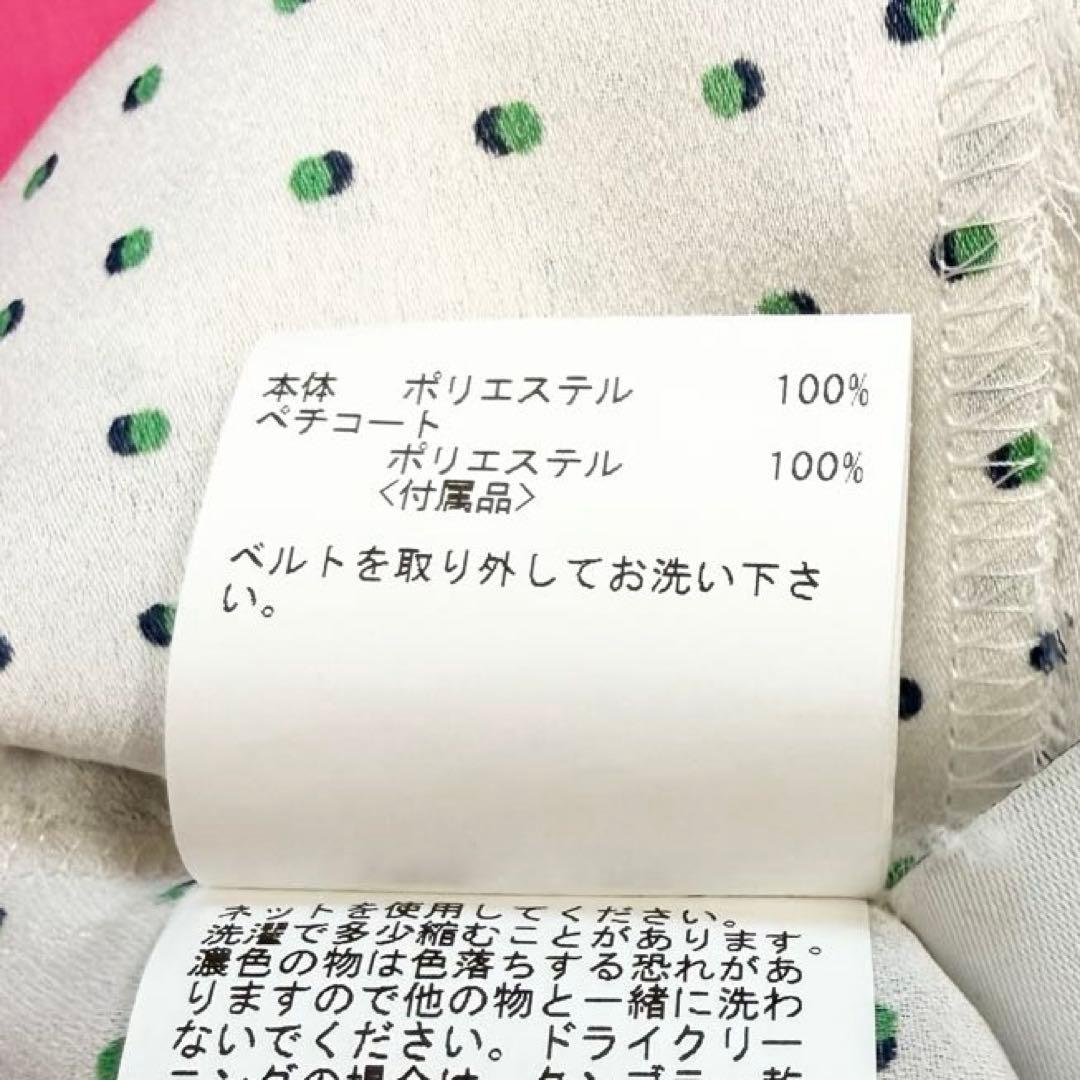 本体 ポリエステル 100%
ペチコート
ポリエステル 100%
<付属品>
ベルトを取り外してお洗い下さ
い。
ネットを使用してください。
洗濯で多少縮むことがあります。
濃色の物は色落ちする恐れがあ
りますので他の物と一緒に洗わ
ないでください。ドライクリー
ニングの場合は、タンブラー乾